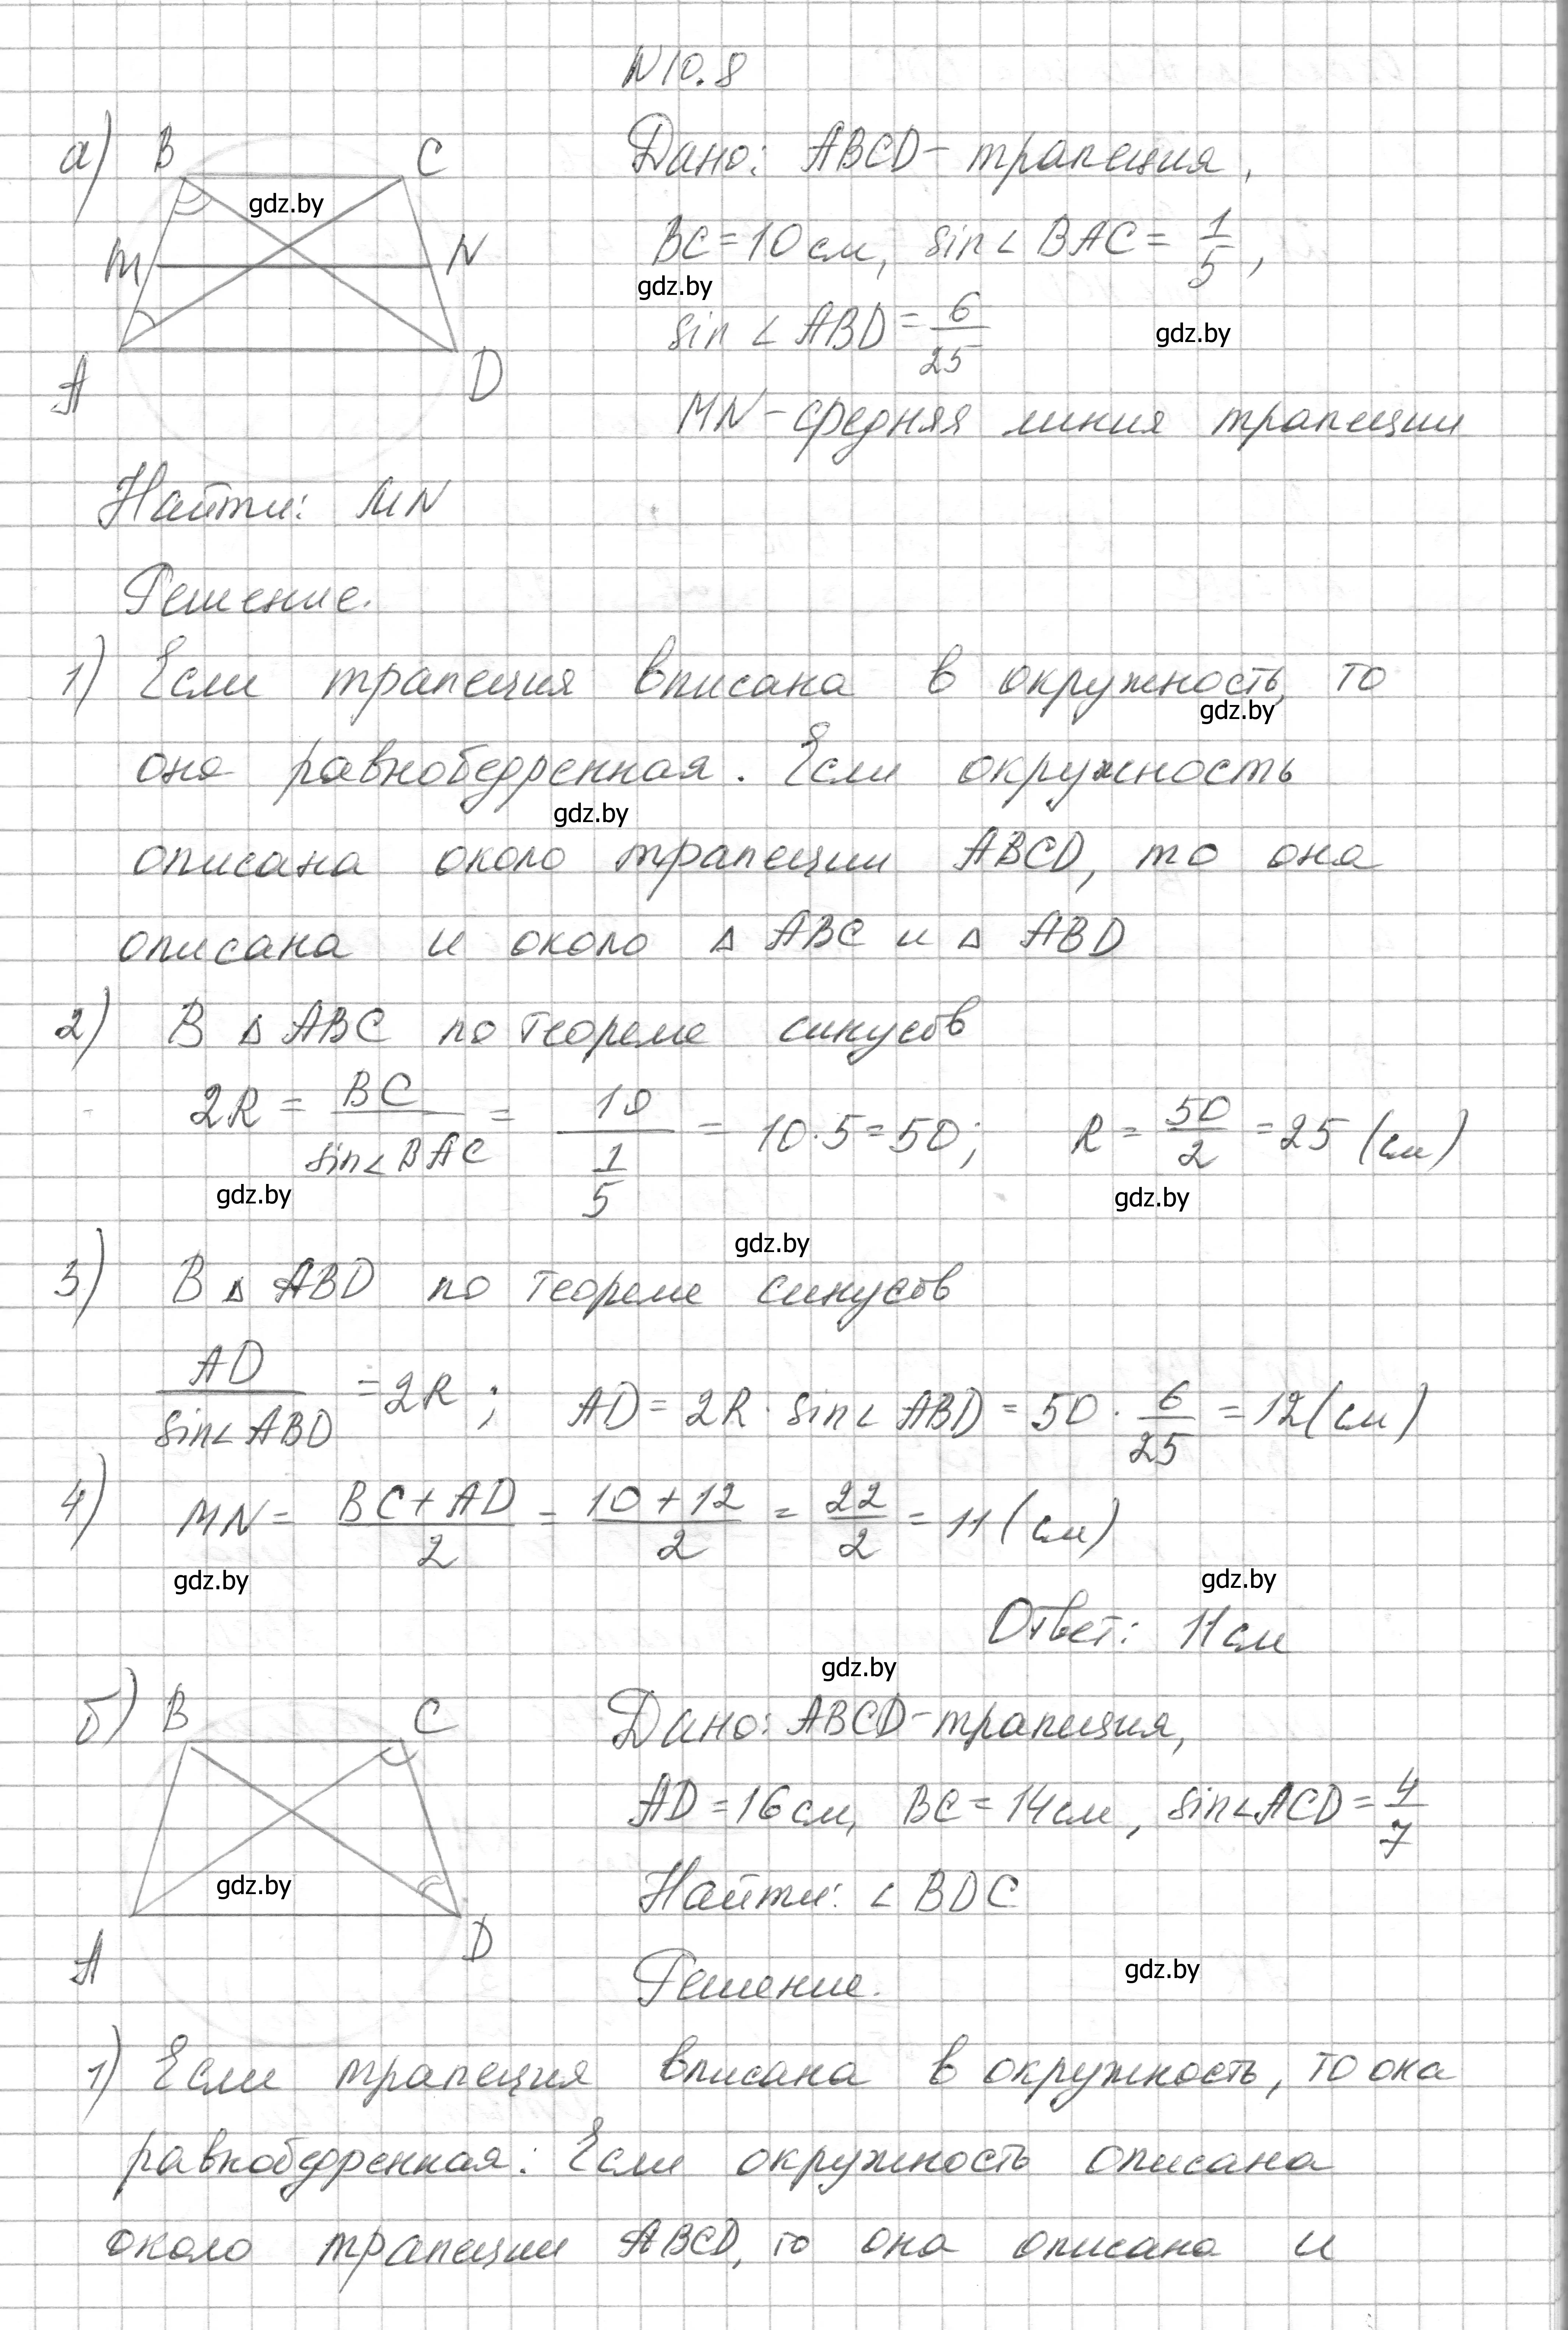 N 10.8
а) B C Дано: ABCD - трапеция,
gdz.by
M N BC = 10 см, sin∠BAC = 1/5,
gdz.by
sin∠ABD = 6/25
gdz.by
A D
MN - средняя линия трапеции
Найти: MN
Решение.
1) Если трапеция вписана в окружность, то
gdz.by
она равнобедренная. Если окружность
gdz.by
описана около трапеции ABCD, то она
описана и около △ ABC и △ ABD
2) В △ ABC по теореме синусов
2R = BC/sin∠BAC = 10/(1/5) = 10·5 = 50; R = 50/2 = 25 (см)
gdz.by gdz.by
gdz.by
3) В △ ABD по теореме синусов
AD/sin∠ABD = 2R; AD = 2R · sin∠ABD = 50 · 6/25 = 12 (см)
4) MN = (BC + AD)/2 = (10 + 12)/2 = 22/2 = 11 (см)
gdz.by gdz.by
Ответ: 11 см
gdz.by
б) B C Дано: ABCD - трапеция,
AD = 16 см, BC = 14 см, sin∠ACD = 4/7
gdz.by Найти: ∠BDC
A D
Решение.
gdz.by
1) Если трапеция вписана в окружность, то она
равнобедренная. Если окружность описана
около трапеции ABCD, то она описана и